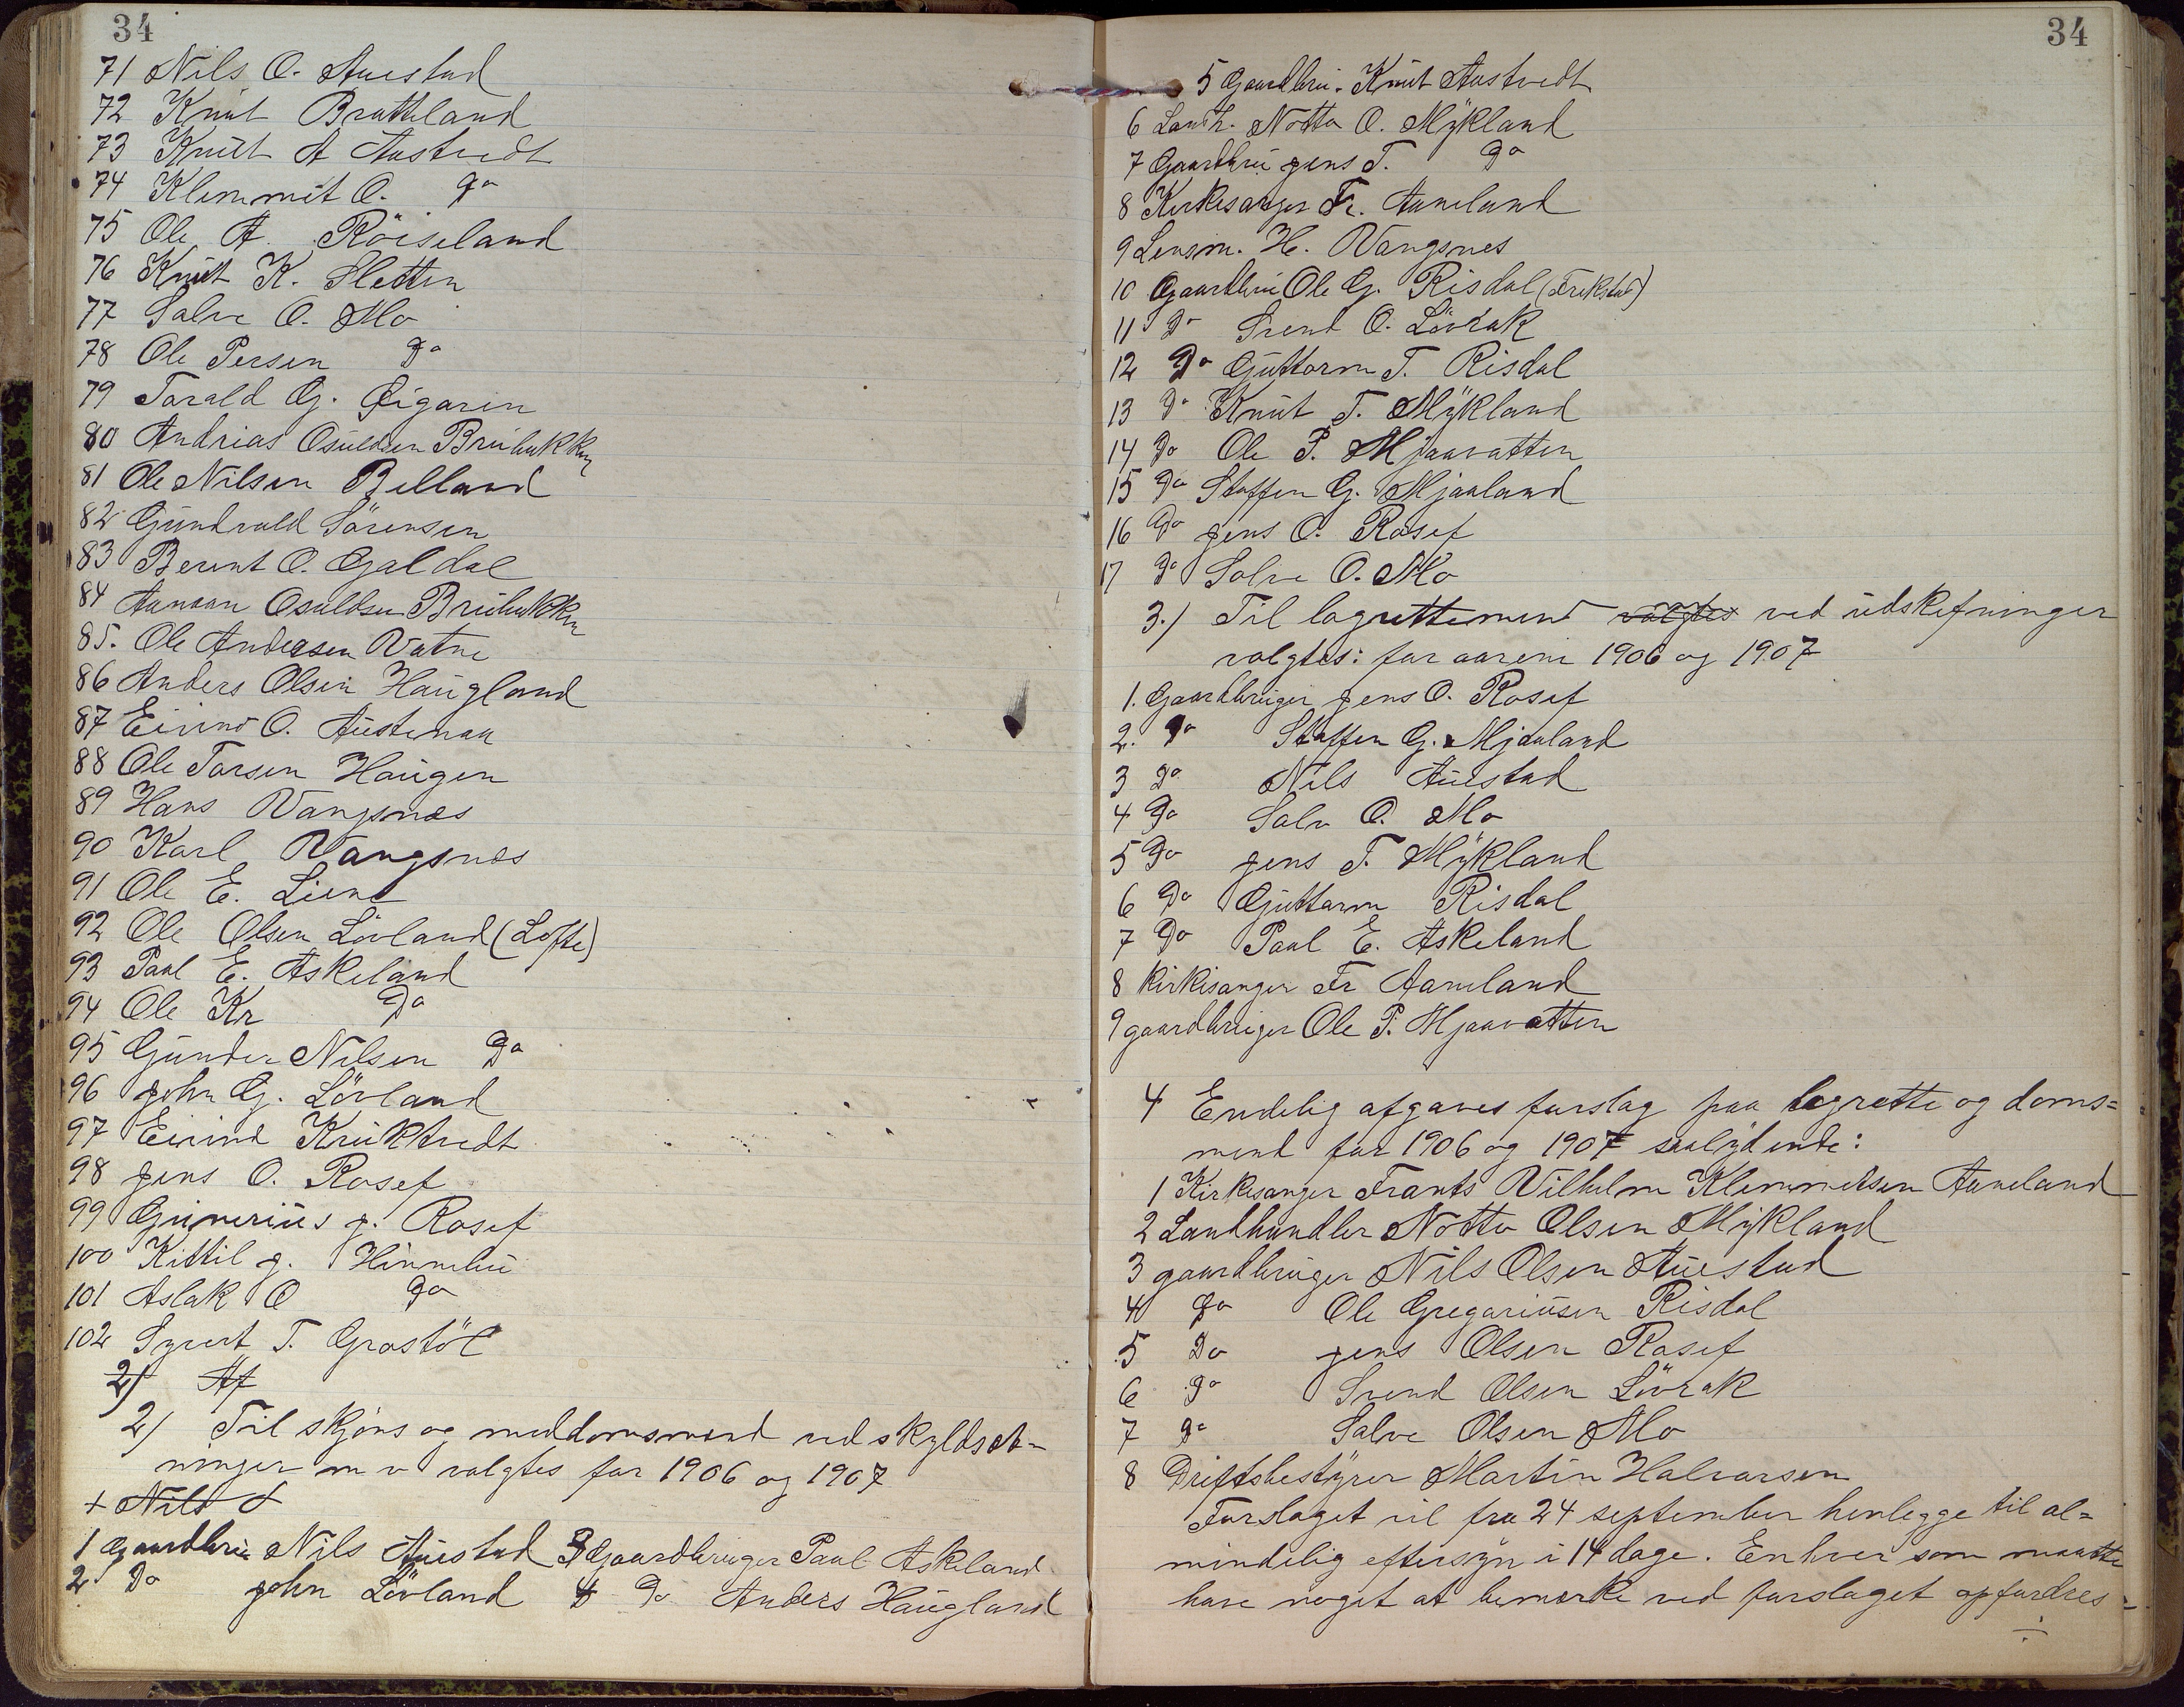 34
71 Nils O. Austad
72 Knut Bratteland
73 Knut A Austvedt
74 Klemmit O. Do
75 Ole A. Röiseland
76 Knut K. Sletten
77 Salve O. Mo
78 Ole Persen Do
79 Torald G. Øigaren
80 Andrias Osuldsen
81 Ole Nilsen Belland
82 Gundvald Sørensen
83 Berent O. Galdal
84 Aanaan Osuldsen
85. Ole Andersen Vatne
86 Anders Olsen Haugland
87 Eivind O. Austenaa
88 Ole Torsen Haugen
89 Hans Vangsnæs
90 Karl Vangsnæs
91 Ole E. Liene
92 Ole Olsen Lövland (Lofte)
93 Paal E. Askeland
94 Ole Kr Do
95 Gunder Nilsen Do
96 John G. Lövland
97 Eivind Kruktvedt
98 Jens O. Rosef
99 Gunerius J. Rosef
100 Kittil J. Hinnebu
101 Aslak O Do
102 Syvert T. Grostöl
2) Af
2) Til skjöns og meddomsmænd ved skyldsæt-
ninger m v valgtes for 1906 og 1907
+ Nils
1 Gaardbru Nils Austad 3 Gaardbruger Paal Askeland
2 Do John Lövland 4 Do Anders Haugland
34
5 Gaardbru. Knut Austvedt
6 Landh. Notto O. Mÿkland
7 Gaardbru Jens T. Do
8 Kirkesanger Fr. Aaneland
9 Lensm. H. Vangsnes
10 Gaardbru Ole G. Risdal
11 Do Svend O. Lövrak
12 Do Guttorm T. Risdal
13 Do Knut T. Mÿkland
14 Do Ole P. Mjaavatten
15 Do Staffen G. Mjaaland
16 Do Jens O. Rosef
17 Do Salve O. Mo
3.) Til lagrettemend valgtes ved udskiftninger
valgtes: for aarene 1906 og 1907
1. Gaardbruger Jens O. Rosef
2. Do Staffen G. Mjaaland
3 Do Nils Austad
4 Do Salve O. Mo
5 Do Jens T. Mÿkland
6 Do Guttorm Risdal
7 Do Paal E. Askeland
8 Kirkesanger Fr Aaneland
9 gaardbruger Ole P. Mjaavatten
4 Endelig afgaves forslag paa lagrette og doms=
mend for 1906 og 1907 saalydende:
1 Kirkesanger Frants Vilhelm Klemmetsen Aaneland
2 Landhandler Notto Olsen Mÿkland
3 gaardbruger Nils Olsen Austad
4 Do Ole Gregariusen Risdal
5 Do Jens Olsen Rosef
6 Do Svend Olsen Lövrak
7 Do Salve Olsen Mo
8 Driftsbestÿrer Martin Halvorsen
Forslaget vil fra 24 september henlegge til al=
mindelig eftersÿn i 14 dage. Enhver som maatte
have noget at bemerke ved forslaget opfordres